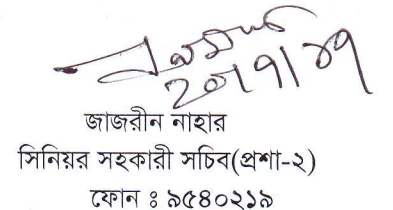 জাজরীন নাহার
সিনিয়র সহকারী সচিব(প্রশা-২)
ফোন : ৯৫৪০২১৯